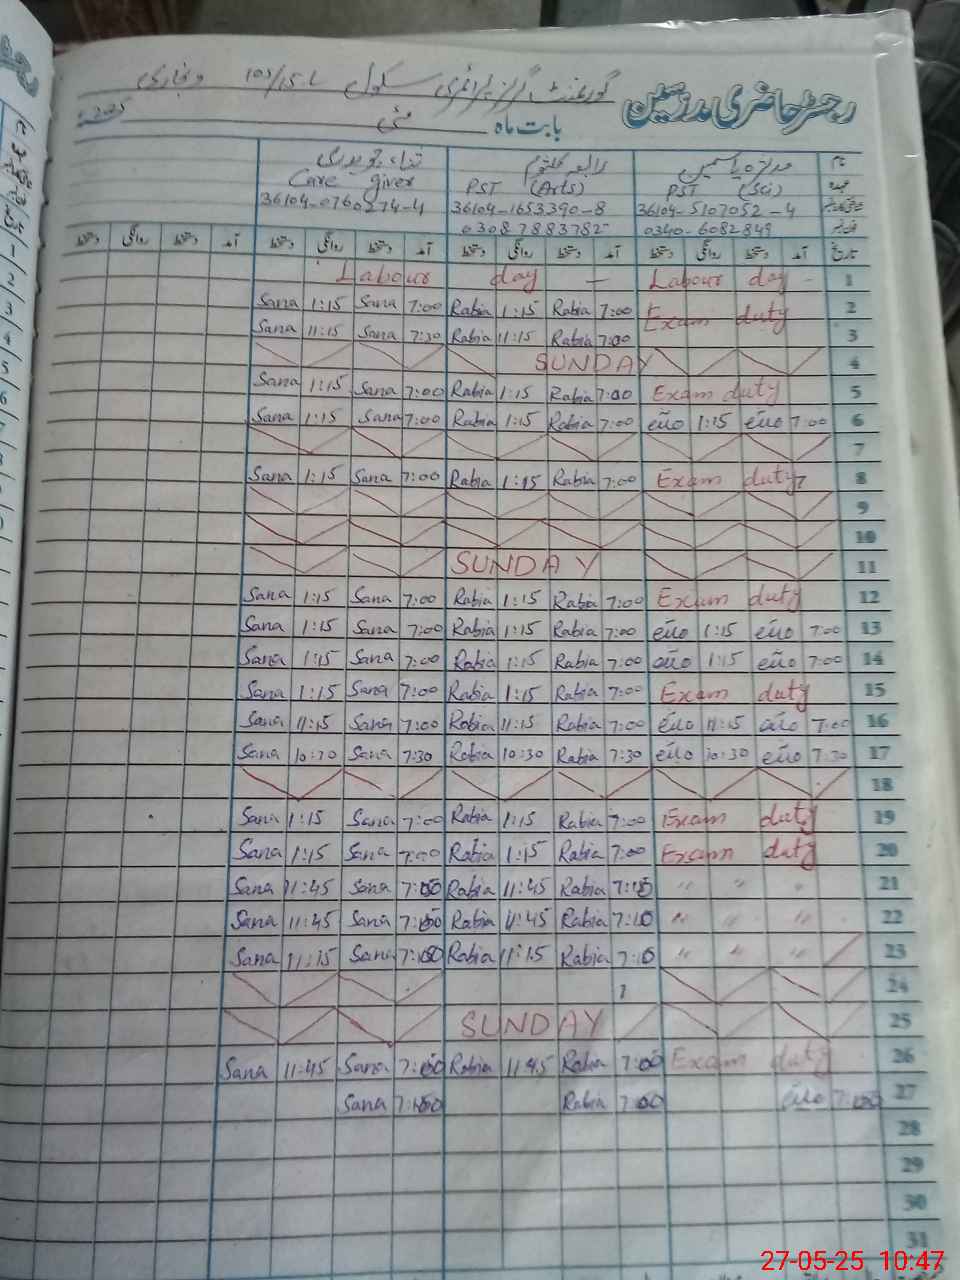 گورنمنٹ گرلز پرائمری سکول 103/15-L وہاڑی
رجسٹر حاضری مدرسین
بابت ماہ مئی 2025
نام
ثناء چوہدری رابعہ کلثوم یاسمین
Care giver PST (Arts) PST (Sci)
36104-0760274-4 36104-1653390-8 36104-5107052-4
03087883782 0340-6082849
دستخط روانگی دستخط آمد دستخط روانگی دستخط آمد دستخط روانگی دستخط آمد دستخط روانگی دستخط آمد تاریخ
Labour day — Labour day - 1
Sana 1:15 Sana 7:00 Rabia 1:15 Rabia 7:00 Exam duty 2
Sana 11:15 Sana 7:30 Rabia 11:15 Rabia 7:00 3
SUNDAY 4
Sana 1:15 Sana 7:00 Rabia 1:15 Rabia 7:00 Exam duty 5
Sana 1:15 Sana 7:00 Rabia 1:15 Rabia 7:00 1:15 7:00 6
7
Sana 1:15 Sana 7:00 Rabia 1:15 Rabia 7:00 Exam duty 8
9
10
SUNDAY 11
Sana 1:15 Sana 7:00 Rabia 1:15 Rabia 7:00 Exam duty 12
Sana 1:15 Sana 7:00 Rabia 1:15 Rabia 7:00 1:15 7:00 13
Sana 1:15 Sana 7:00 Rabia 1:15 Rabia 7:00 1:15 7:00 14
Sana 1:15 Sana 7:00 Rabia 1:15 Rabia 7:00 Exam duty 15
Sana 11:15 Sana 7:00 Rabia 11:15 Rabia 7:00 11:15 7:00 16
Sana 10:30 Sana 7:30 Rabia 10:30 Rabia 7:30 10:30 7:30 17
18
Sana 1:15 Sana 7:00 Rabia 1:15 Rabia 7:00 Exam duty 19
Sana 1:15 Sana 7:00 Rabia 1:15 Rabia 7:00 Exam duty 20
Sana 11:45 Sana Rabia 11:45 Rabia " " " 21
Sana 11:45 Sana Rabia 11:45 Rabia " " " 22
Sana 11:15 Sana Rabia 11:15 Rabia " " " 23
24
SUNDAY 25
Sana 11:45 Sana Rabia 11:45 Rabia 7:00 Exam duty 26
Sana Rabia 7:00 27
28
29
30
31
27-05-25 10:47